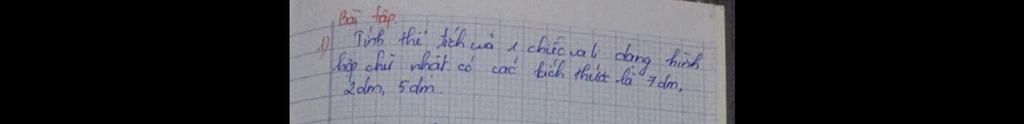 Bài tập.
1) Tính thể tích của 1 chiếc vali dạng hình
hộp chữ nhật có các kích thước là 7dm,
2dm, 5dm.